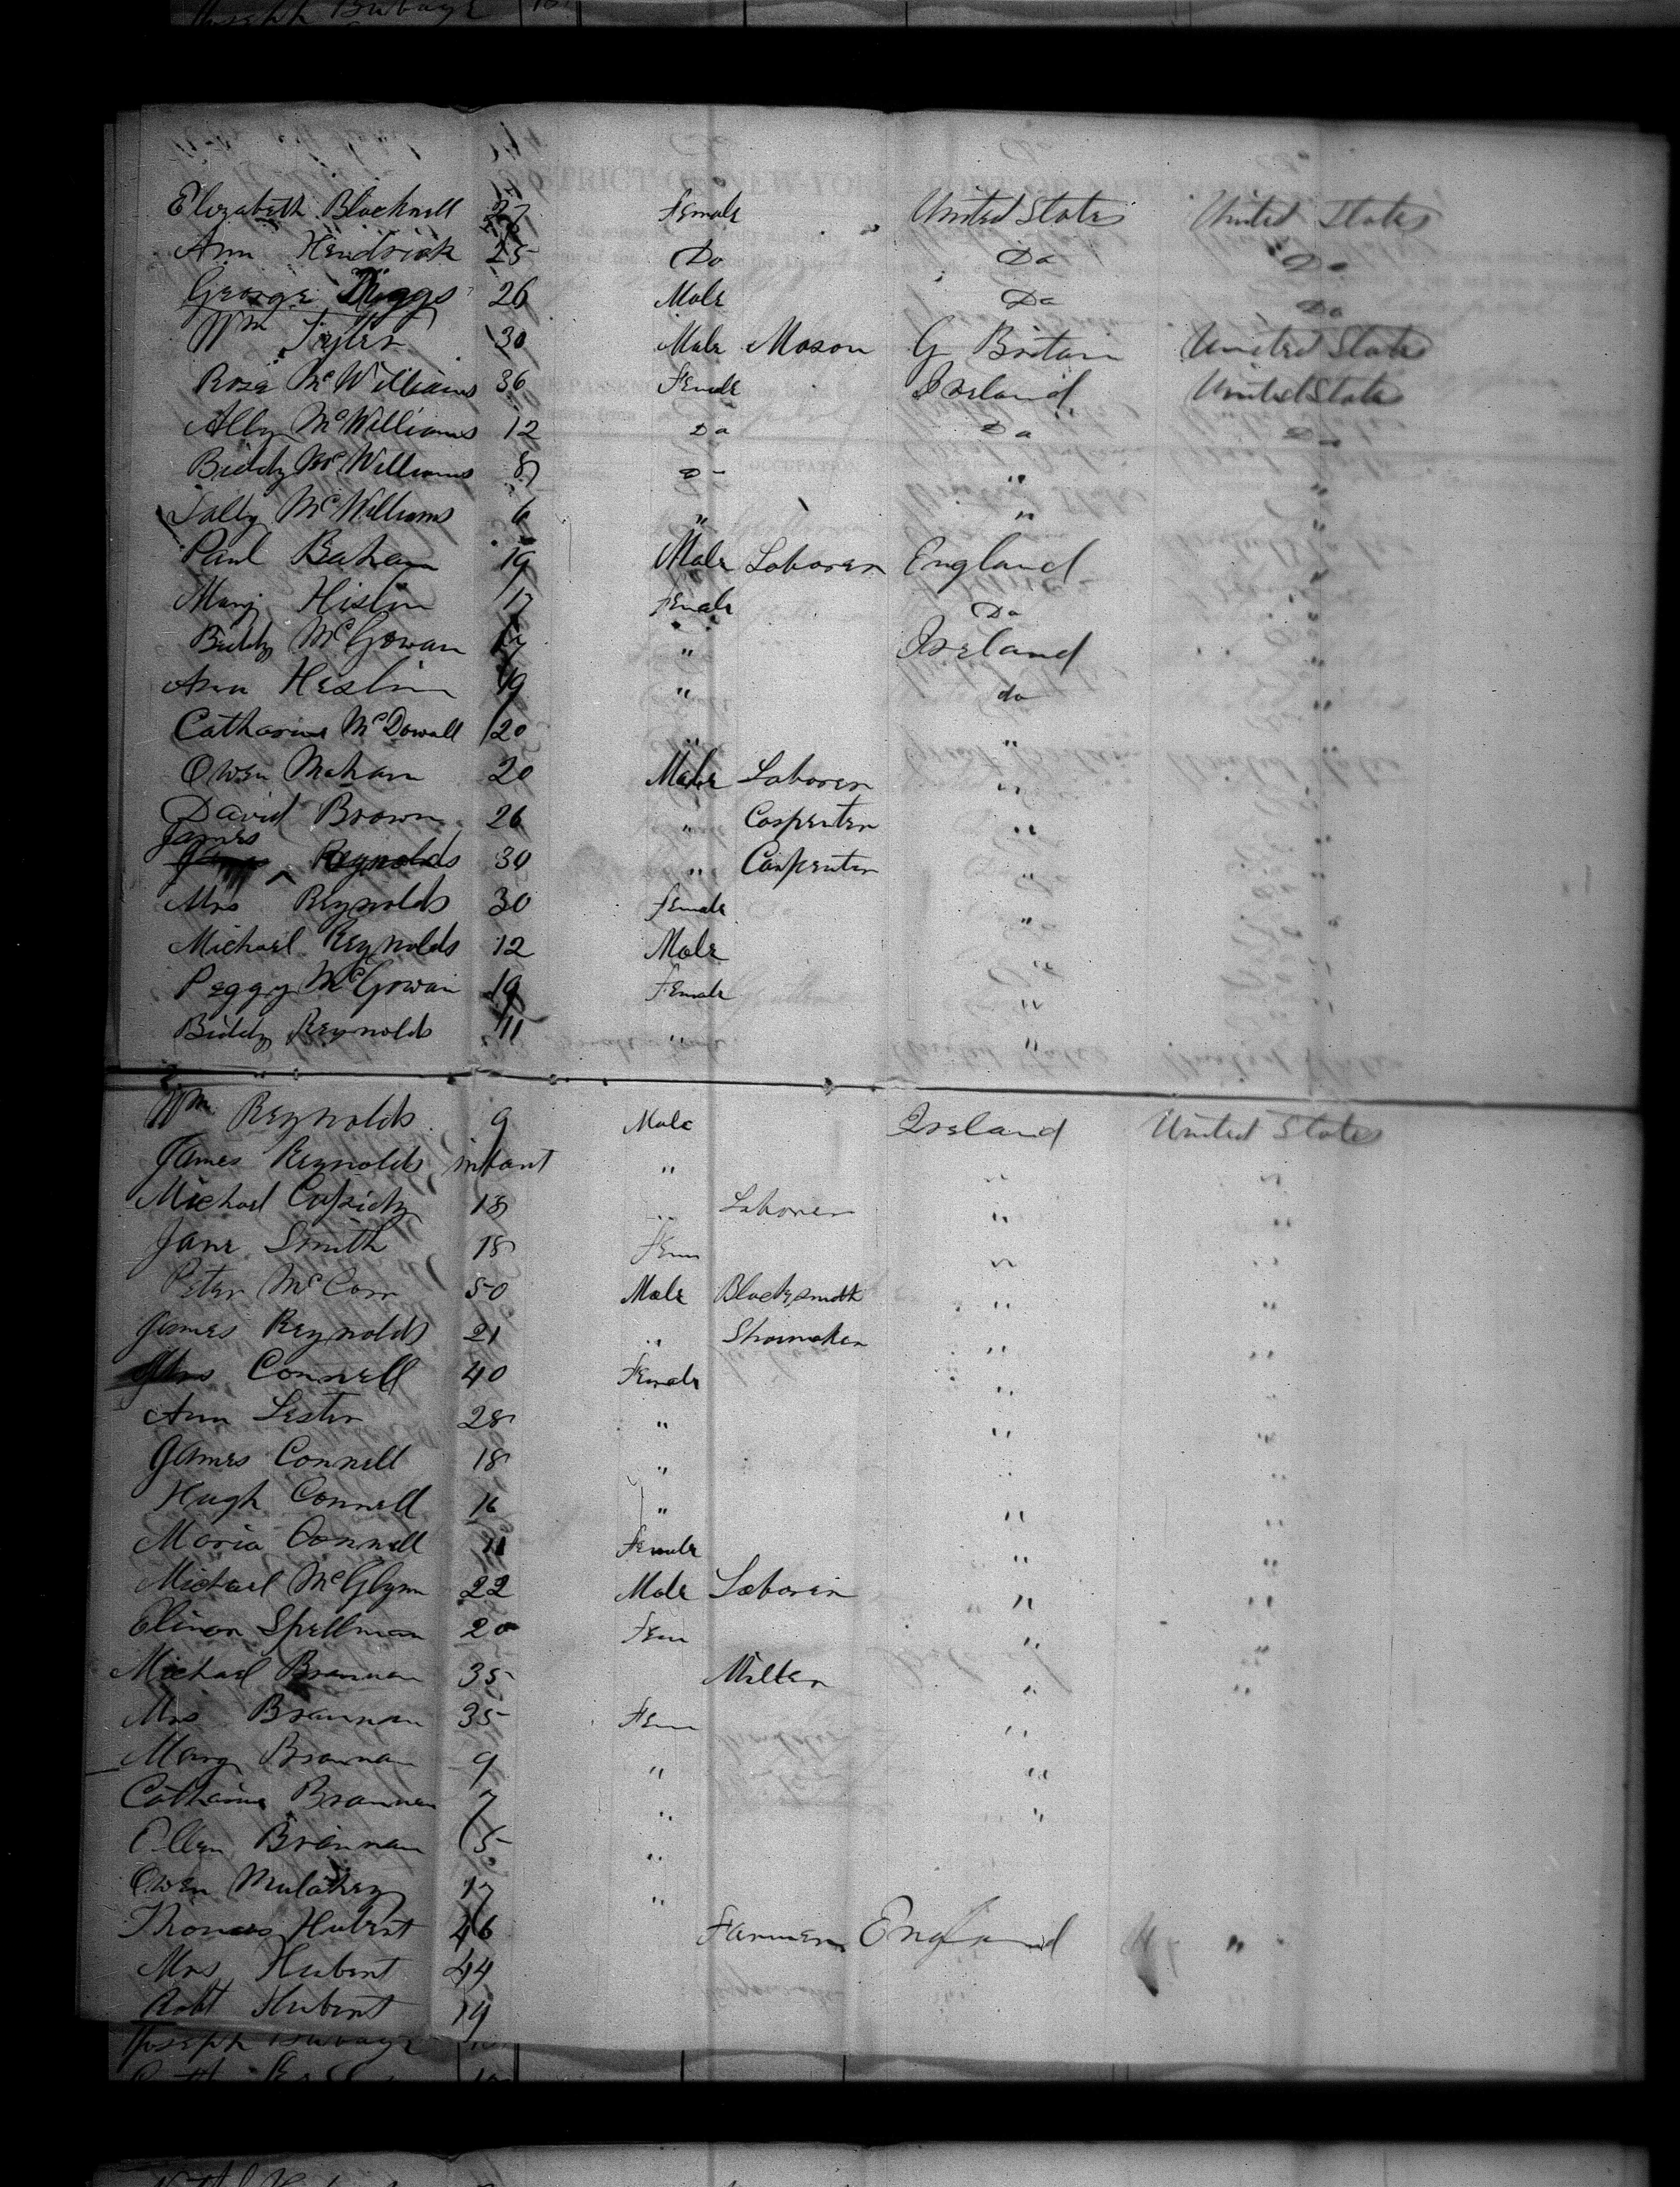 Elizabeth Blacknell 27 Female United States United States
Ann Hendrick 25 Do Do Do
George 26 Male Do Do
Wm Tyler 30 Male Mason G Britain United States
Rose McWilliams 36 Female Ireland United States
Ally McWilliams 12 Do Do Do
Biddy McWilliams 8 Do " "
Sally McWilliams 6 " " "
Paul 19 Male Laborer England "
Mary Hislin 17 Female Do
Biddy McGowan 17 " Ireland "
Ann Heslin 19 " do "
Catharine McDowall 20 " " "
Owen Mahan 20 Male Laborer "
David Brown 26 " Carpenter "
James
Reynolds 30 " Carpenter "
Mrs Reynolds 30 Female " "
Michael Reynolds 12 Male " "
Peggy McGowan 19 Female " "
Biddy Reynolds 11 " "
Wm Reynolds 9 Male Ireland United States
James Reynolds infant " " "
Michael Cassidy 18 " Laborer " "
Jane Smith 18 Fem " "
Peter McCann 50 Male Blacksmith " "
James Reynolds 21 " Shoemaker " "
Mrs Connell 40 Female " "
Ann Lester 28 " " "
James Connell 18 " " "
Hugh Connell 16 " " "
Maria Connell 11 Female " "
Michael McGlynn 22 Male Laborer " "
Elinor Spellman 20 Fem " "
Michael Brannan 35 Miller " "
Mrs Brannan 35 Fem "
Mary Brannan 9 " "
Catharine Brannan 7 " "
Ellen Brannan 5 "
Owen Mulahey 17 "
Thomas Hubert 46 Farmer England "
Mrs Hubert 44
Robt Hubert 19